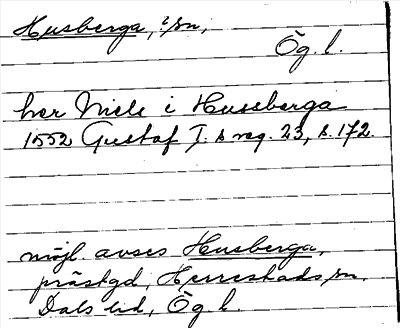 Husberga, ?/sn,
Ög. l.
her Niels i Huseberga
1552 Gustaf I:s reg. 23, s. 172.
möjl. avses Husberga,
prästgd, Herrestads sn,
Dals hd, Ög l.